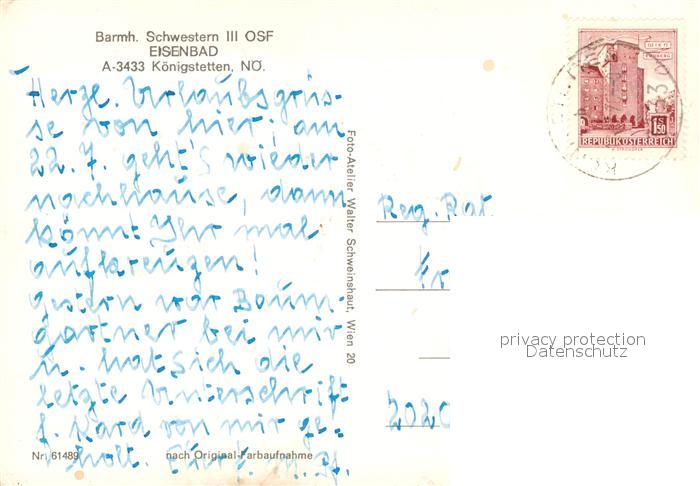 Barmh. Schwestern III OSF
EISENBAD
A-3433 Königstetten, NÖ.
Herzl. Urlaubsgrüs-
se von hier; am
22. 7. geht's wieder
nachhause, dann
könnt Ihr mal
aufkreuzen!
Gestern war Baum-
gartner bei mir
u. hat sich die
letzte Unterschrift
f. Kard von mir ge-
holt.
Nr. 61489
nach Original-Farbaufnahme
Foto-Atelier Walter Schweinshaut, Wien 20
1.50
REPUBLIK ÖSTERREICH
Reg. Rat
Fr
2020
privacy protection
Datenschutz